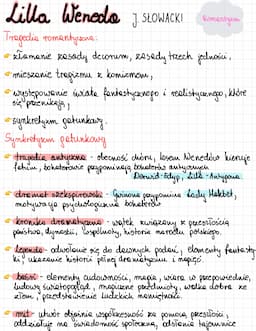 Lilla Weneda J. SŁOWACKI
Romantyzm
Tragedia romantyczna:
złamanie zasady decorum, zasady trzech jedności,
mieszanie tragizmu z komizmem,
występowanie świata fantastycznego i realistycznego, które
się przenikają,
synkretyzm gatunkowy.
Synkretyzm gatunkowy
tragedia antyczna - obecność chóru, losem Wenedów kieruje
fatum, bohaterowie przypominają bohaterów antycznych
Derwid-Edyp, Lilla-Antygona
dramat szekspirowski - Gwinona przypomina Lady Makbet,
motywacja psychologiczna bohaterów
kronika dramatyczna - wątek związany z przeszłością
państwa, dynastii, wspólnoty, historia narodu polskiego.
legenda - odwołanie się do dawnych podań, elementy fantasty-
ki, ukazanie historii pełnej dramatyzmu i napięć.
baśń - elementy cudowności, magia, wiara w przepowiednie,
ludowy światopogląd, magiczne przedmioty, walka dobra ze
złem, przedstawienie ludzkich namiętności.
mit - utwór objaśnia współczesność za pomocą przeszłości,
oddziałuje na świadomość społeczną, odsłania tajemnice